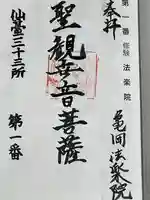 第一番 修験 法楽院
奉拝
亀岡法楽院
聖観世音菩薩
仙台三十三所
第一番